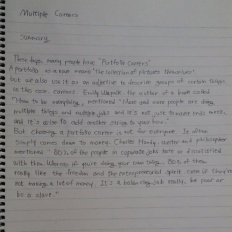 Multiple Careers
Summary
These days, many people have "Portfolio Careers".
A portfolio as a noun means "The collection of pictures themselves"
but we also use it as an adjective to describe groups of certain things
in this case, careers. Emily Wapnick, the author of a book called
"How to be everything", mentioned "More and more people are doing
multiple things and multiple jobs and it's not just
and it's good to add another string to your bow."
But choosing a portfolio career is not for everyone. It often
simply comes down to money. Charles Handy, writer and philosopher
mentioned "80% of the people in corporate jobs are dissatisfied
with their lives. If you're doing your own thing, 80% of them
really like the freedom and the entrepreneurial spirit even if they're
not making a lot of money. It's a balancing job really, be poor or
be a slave."